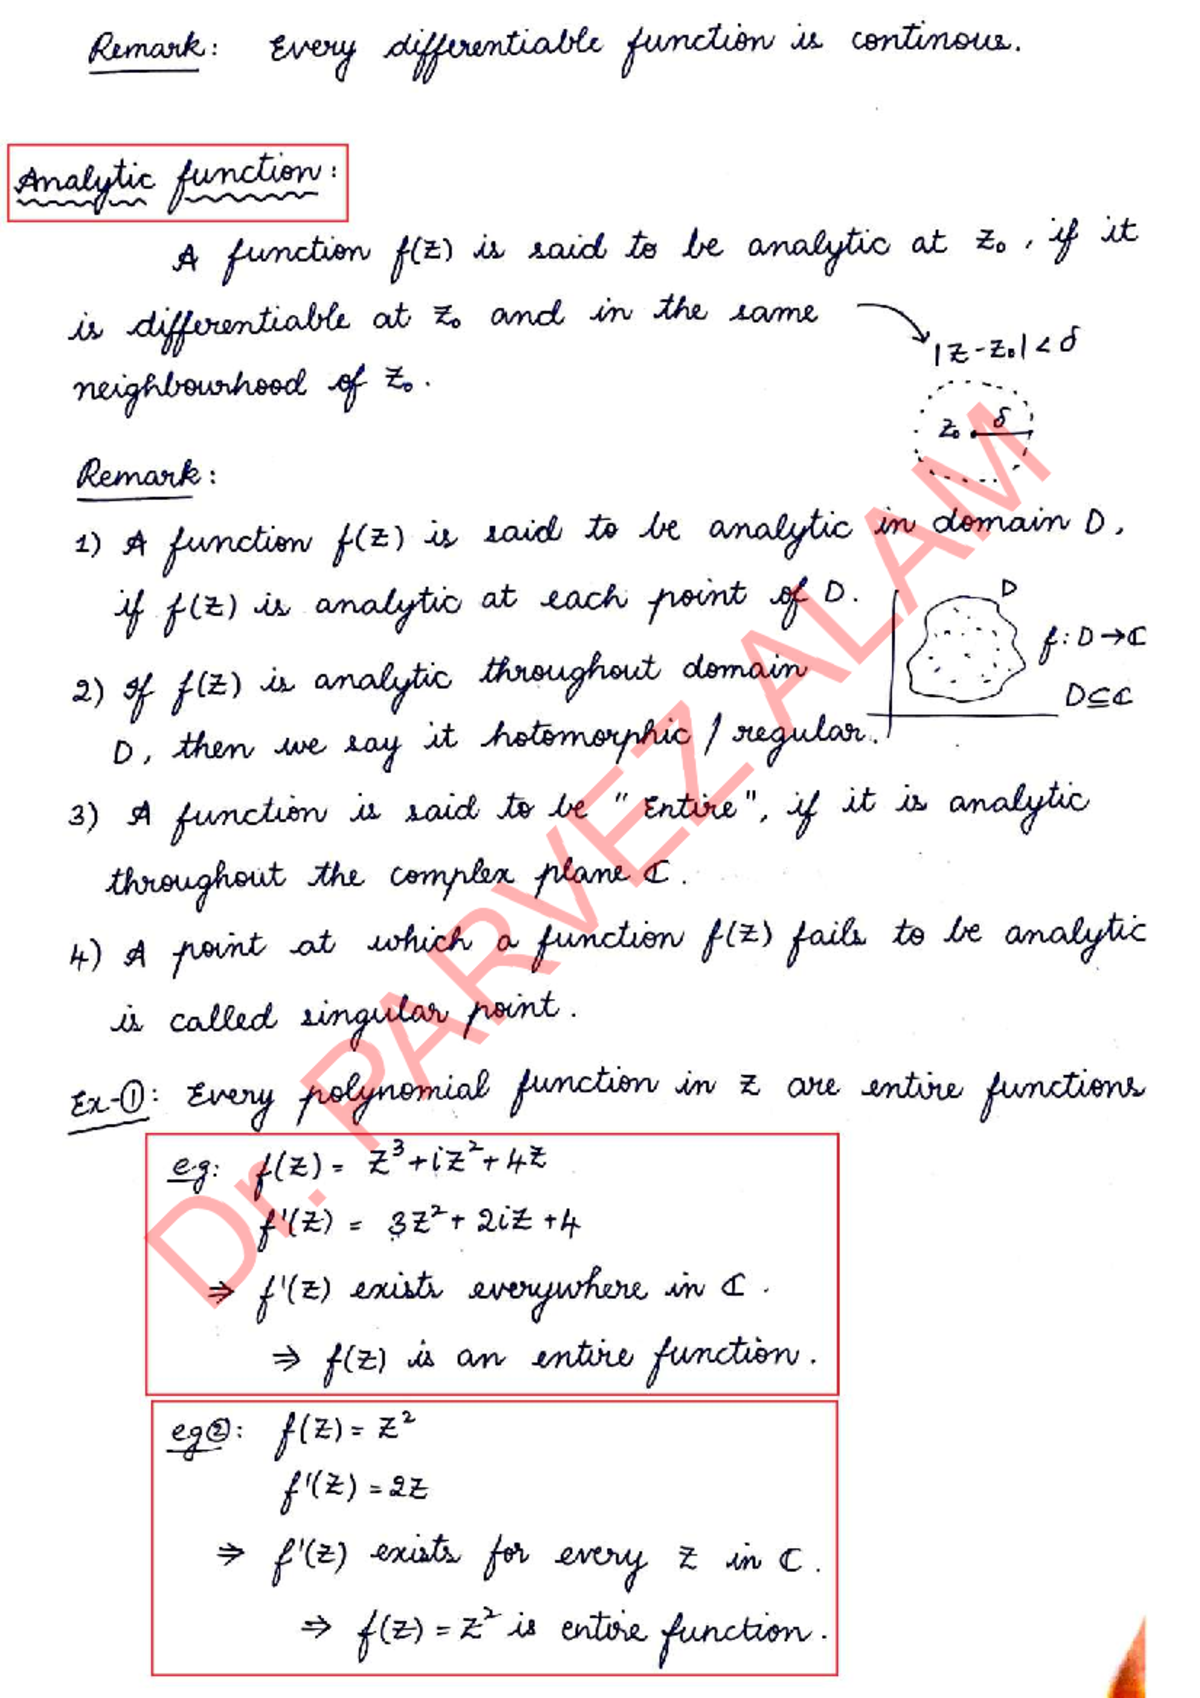 Remark: Every differentiable function is continous.
Analytic function:
A function f(z) is said to be analytic at z₀, if it
is differentiable at z₀ and in the same
neighbourhood of z₀.
|z-z₀|<δ
z₀ δ
Remark:
1) A function f(z) is said to be analytic in domain D,
if f(z) is analytic at each point of D.
D
f: D→ℂ
D⊆ℂ
2) If f(z) is analytic throughout domain
D, then we say it hotomorphic / regular.
3) A function is said to be "Entire", if it is analytic
throughout the complex plane ℂ.
4) A point at which a function f(z) fails to be analytic
is called singular point.
Ex-①: Every polynomial function in z are entire functions
e.g: f(z) = z³+iz²+4z
f'(z) = 3z²+2iz+4
⇒ f'(z) exists everywhere in ℂ.
⇒ f(z) is an entire function.
eg②: f(z) = z²
f'(z) = 2z
⇒ f'(z) exists for every z in ℂ.
⇒ f(z) = z² is entire function.
Dr. PARVEZ ALAM